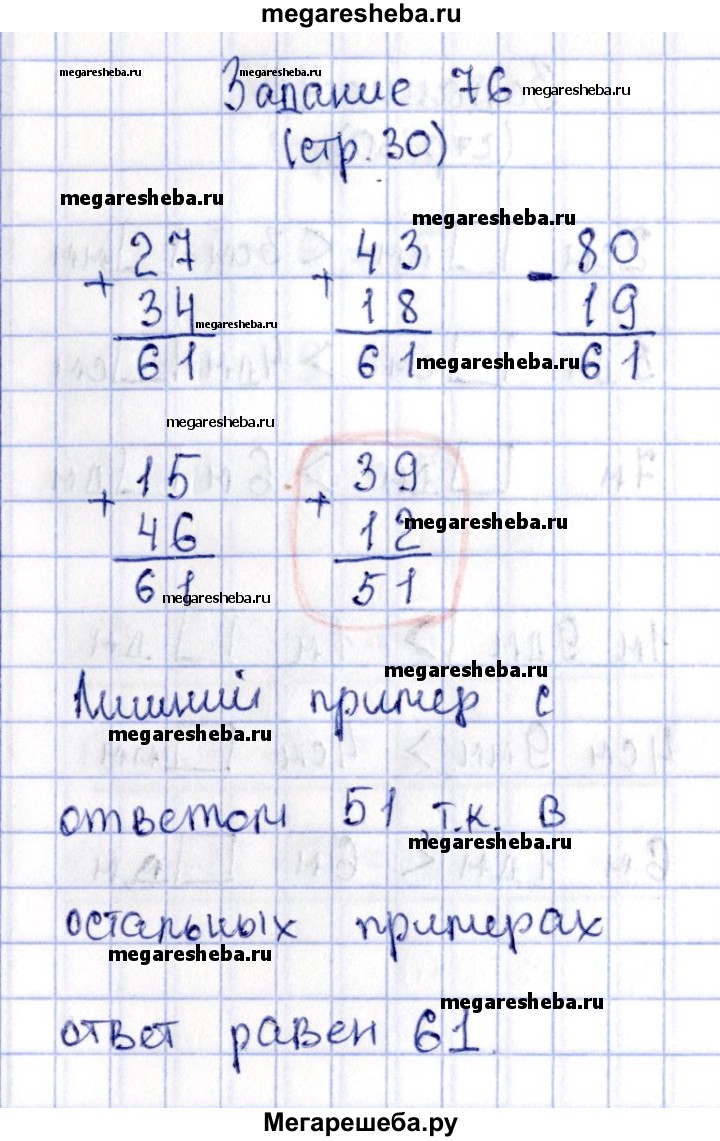 megaresheba.ru
megaresheba.ru megaresheba.ru
Задание 76 megaresheba.ru
(стр. 30)
megaresheba.ru megaresheba.ru
27 43 80
+ + -
34 megaresheba.ru 18 19
61 61 megaresheba.ru 61
megaresheba.ru
15 39
+ +
46 12 megaresheba.ru
61 megaresheba.ru 51
megaresheba.ru
Лишний пример с
megaresheba.ru
ответом 51, т.к. в
megaresheba.ru
остальных примерах
megaresheba.ru
megaresheba.ru
ответ равен 61.
Мегарешеба.ру